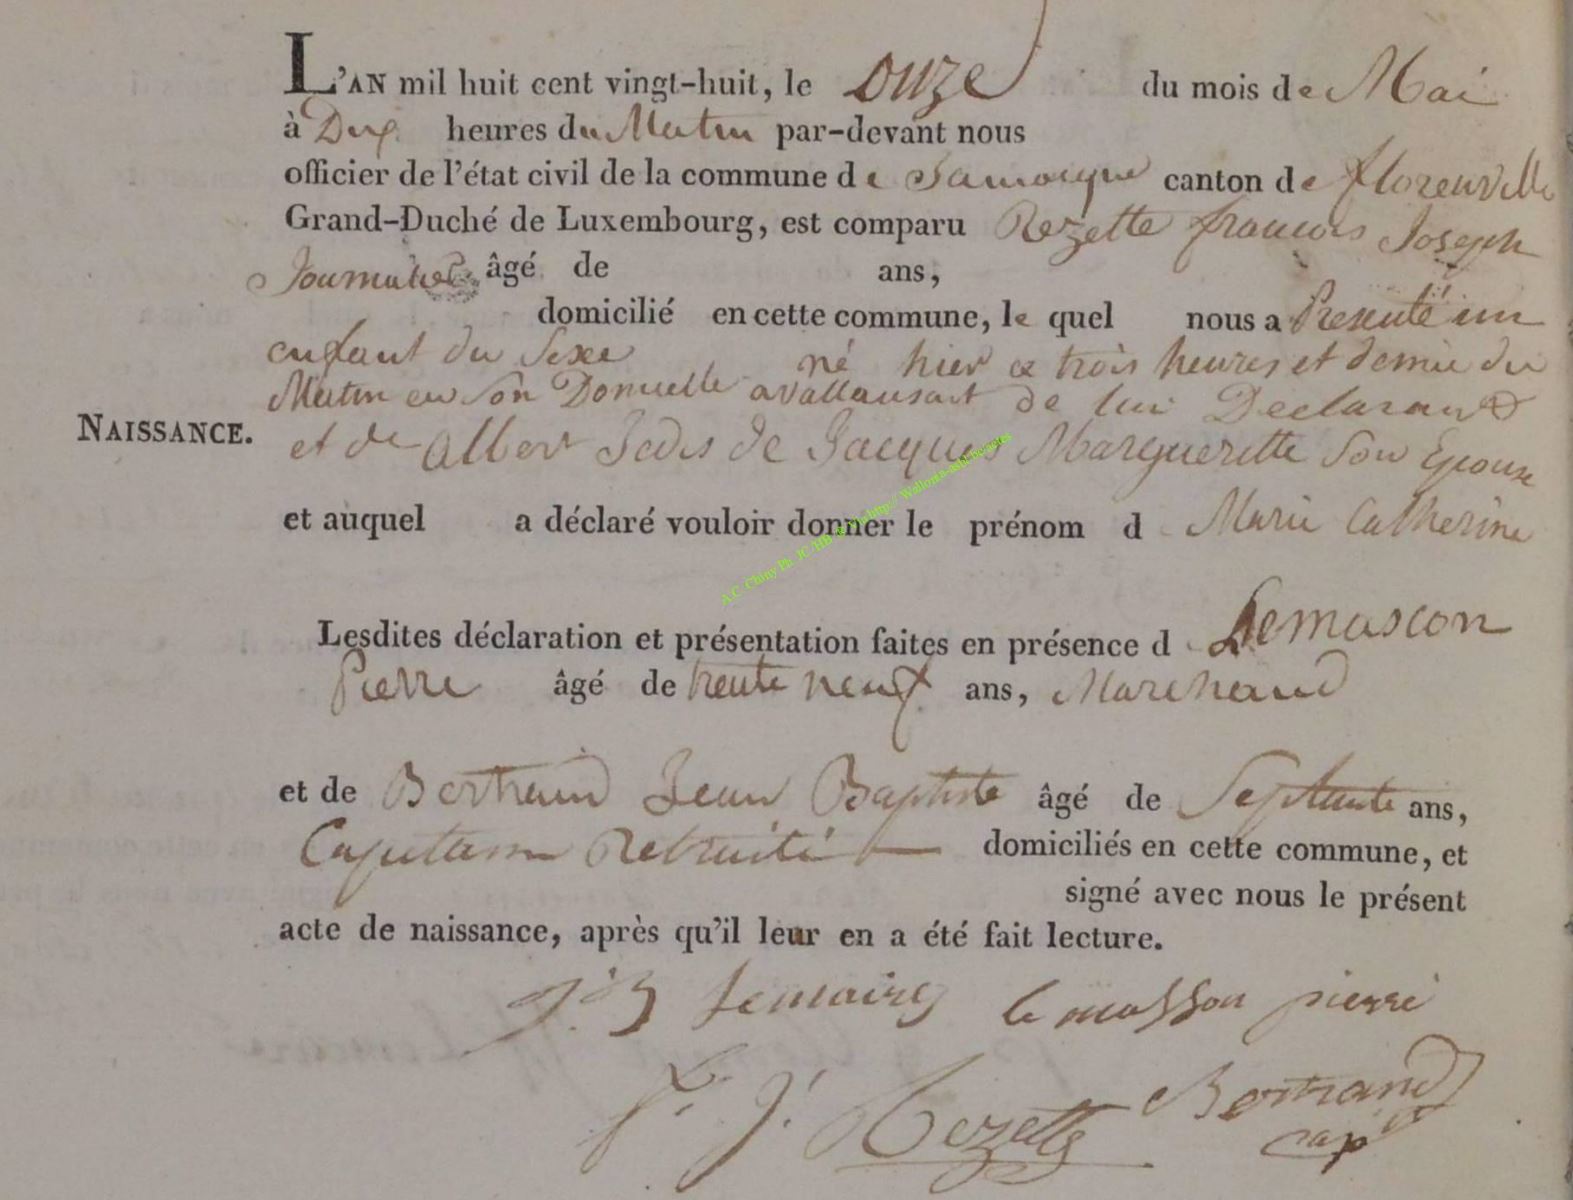 L'AN mil huit cent vingt-huit, le onze du mois de Mai
à Dix heures du Matin par-devant nous
officier de l'état civil de la commune de Jamoigne canton de florenville
Grand-Duché de Luxembourg, est comparu Rezette francois Joseph
âgé de ans,
domicilié en cette commune, le quel nous a Presenté un
enfant du Sexe né hier a trois heures et demie du
Matin en Son Domicile a vallansart de lui Declarant
NAISSANCE.
et de Albert Jadis de Jacques Marguerette Son Epouse
et auquel a déclaré vouloir donner le prénom d Marie Catherine
Lesdites déclaration et présentation faites en présence d Lemascon
Pierre âgé de trente neuf ans, Marchand
et de Bertrand Jean Baptiste âgé de Septante ans,
Capitaine Retraité domiciliés en cette commune, et
signé avec nous le présent
acte de naissance, après qu'il leur en a été fait lecture.
Lemaire le masson pierre
f. J. Rezette Bertrand
cap
A.C. Chiny Ph JC/HB